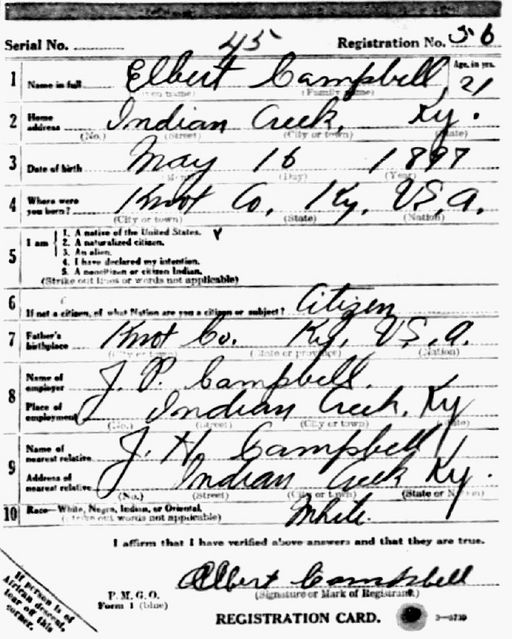 Serial No. 45 Registration No. 56
1 Name in full Elbert Campbell Age, in yrs. 21
(Family name)
2 Home address Indian Creek, Ky.
(No.) (Street) (City or town) (State)
3 Date of birth May 16 1897
(Month) (Day) (Year)
4 Where were you born? Knot Co, Ky, U.S.A.
(City or town) (State) (Nation)
5 I am
1. A native of the United States.
2. A naturalized citizen.
3. An alien.
4. I have declared my intention.
5. A noncitizen or citizen Indian.
(Strike out lines or words not applicable)
6 If not a citizen, of what Nation are you a citizen or subject? Citizen
7 Father's birthplace Knot Co. Ky, U.S.A.
(City or town) (State or province) (Nation)
8 Name of employer J. P. Campbell.
Place of employment Indian Creek, Ky
(No.) (Street) (City or town) (State)
9 Name of nearest relative J. H. Campbell
Address of nearest relative Indian Creek Ky.
(No.) (Street) (City or town) (State or Nation)
10 Race—White, Negro, Indian, or Oriental. White.
(Strike out words not applicable)
I affirm that I have verified above answers and that they are true.
Elbert Campbell
P. M. G. O. (Signature or Mark of Registrant.)
Form 1 (blue)
REGISTRATION CARD. 3—5739
If person is of
African descent,
tear off this
corner.